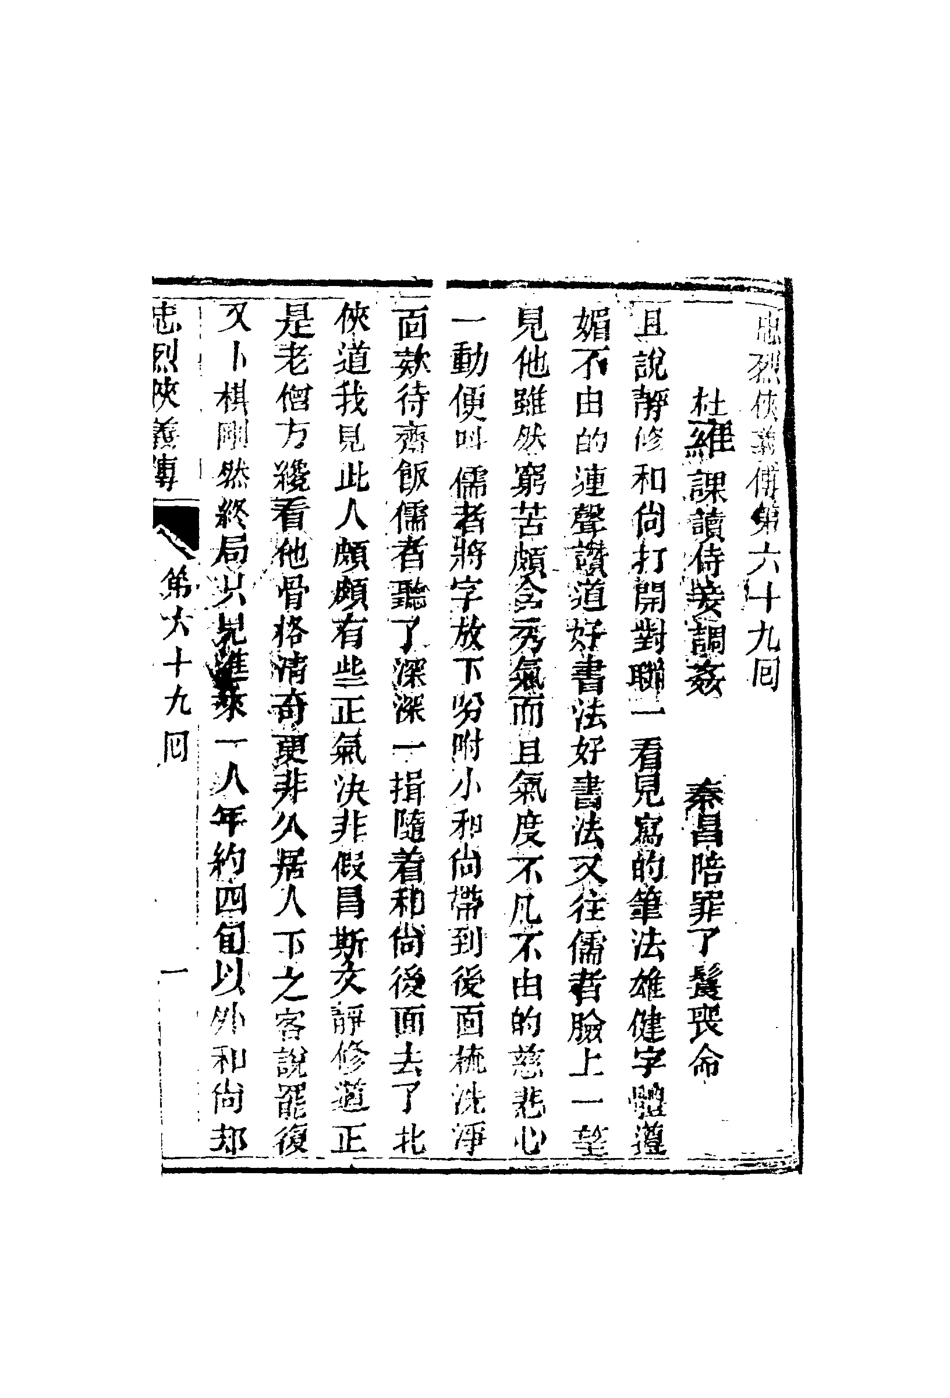 忠烈俠義傳第六十九回
杜雍課讀侍妾調姦　秦昌陪罪了鬟喪命
且說靜修和尚打開對聯一看見寫的筆法雄健字體遒
媚不由的連聲讚道好書法好書法又往儒者臉上一望
見他雖然窮苦頗含秀氣而且氣度不凡不由的慈悲心
一動便叫儒者將字放下吩咐小和尚帶到後面梳洗淨
面款待齋飯儒者聽了深深一揖隨着和尚後面去了北
俠道我見此人頗頗有些正氣決非假冒斯文靜修道正
是老僧方纔看他骨格清奇更非久居人下之客說罷復
又下棋剛然終局只見進來一人年約四旬以外和尚却
忠烈俠義傳
第六十九回
一